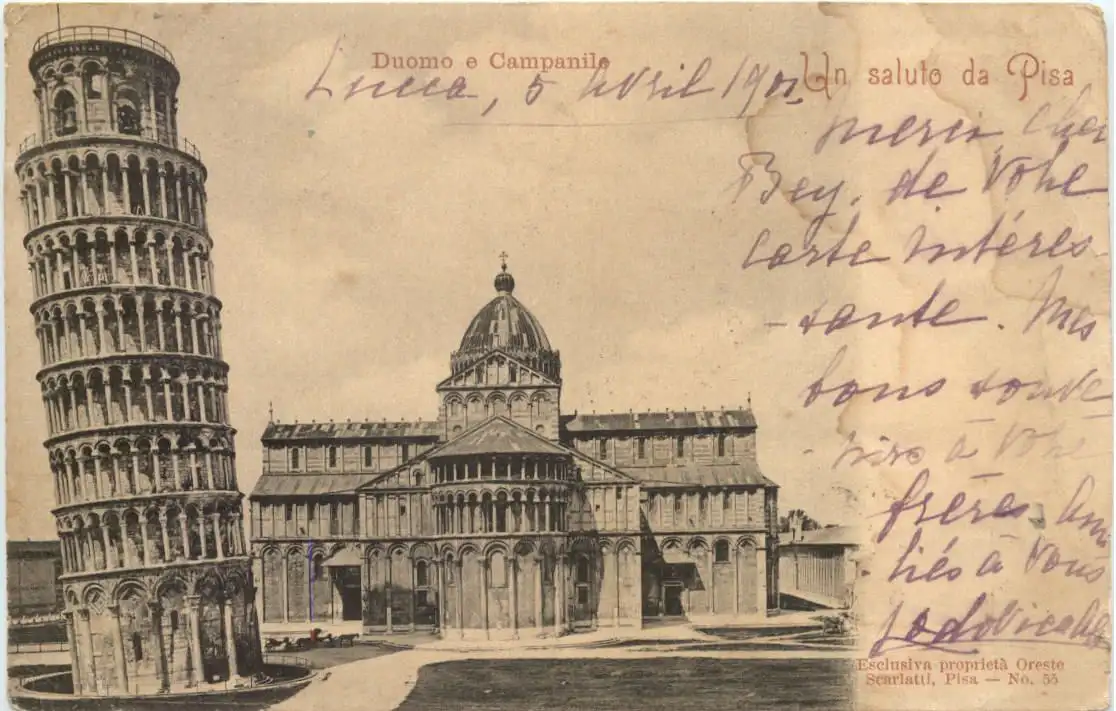 Duomo e Campanile
Un saluto da Pisa
Lucca, 5 Avril 190
Merci, cher
Bey, de votre
carte intéres-
-sante. Mes
bons souve-
nirs à votre
frère. Ami-
tiés à vous
Esclusiva proprietà Oreste
Scarlatti, Pisa — No. 55